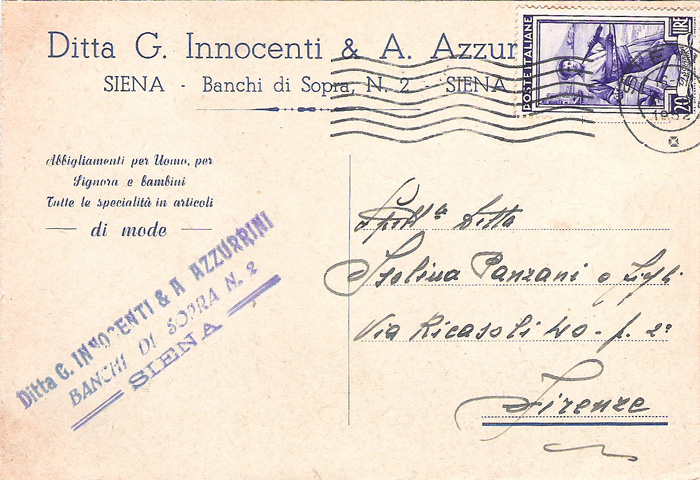 Ditta G. Innocenti & A. Azzur
SIENA - Banchi di Sopra, N. 2 - SIENA
POSTE ITALIANE
LIRE
20
1952
Abbigliamenti per Uomo, per
Signora e bambini
Tutte le specialità in articoli
di mode
Ditta G. INNOCENTI & A AZZURRINI
BANCHI DI SOPRA N. 2
SIENA
Spett.le Ditta
Isolina Panzani e Figli
Via Ricasoli 40 - p. 2º
Firenze